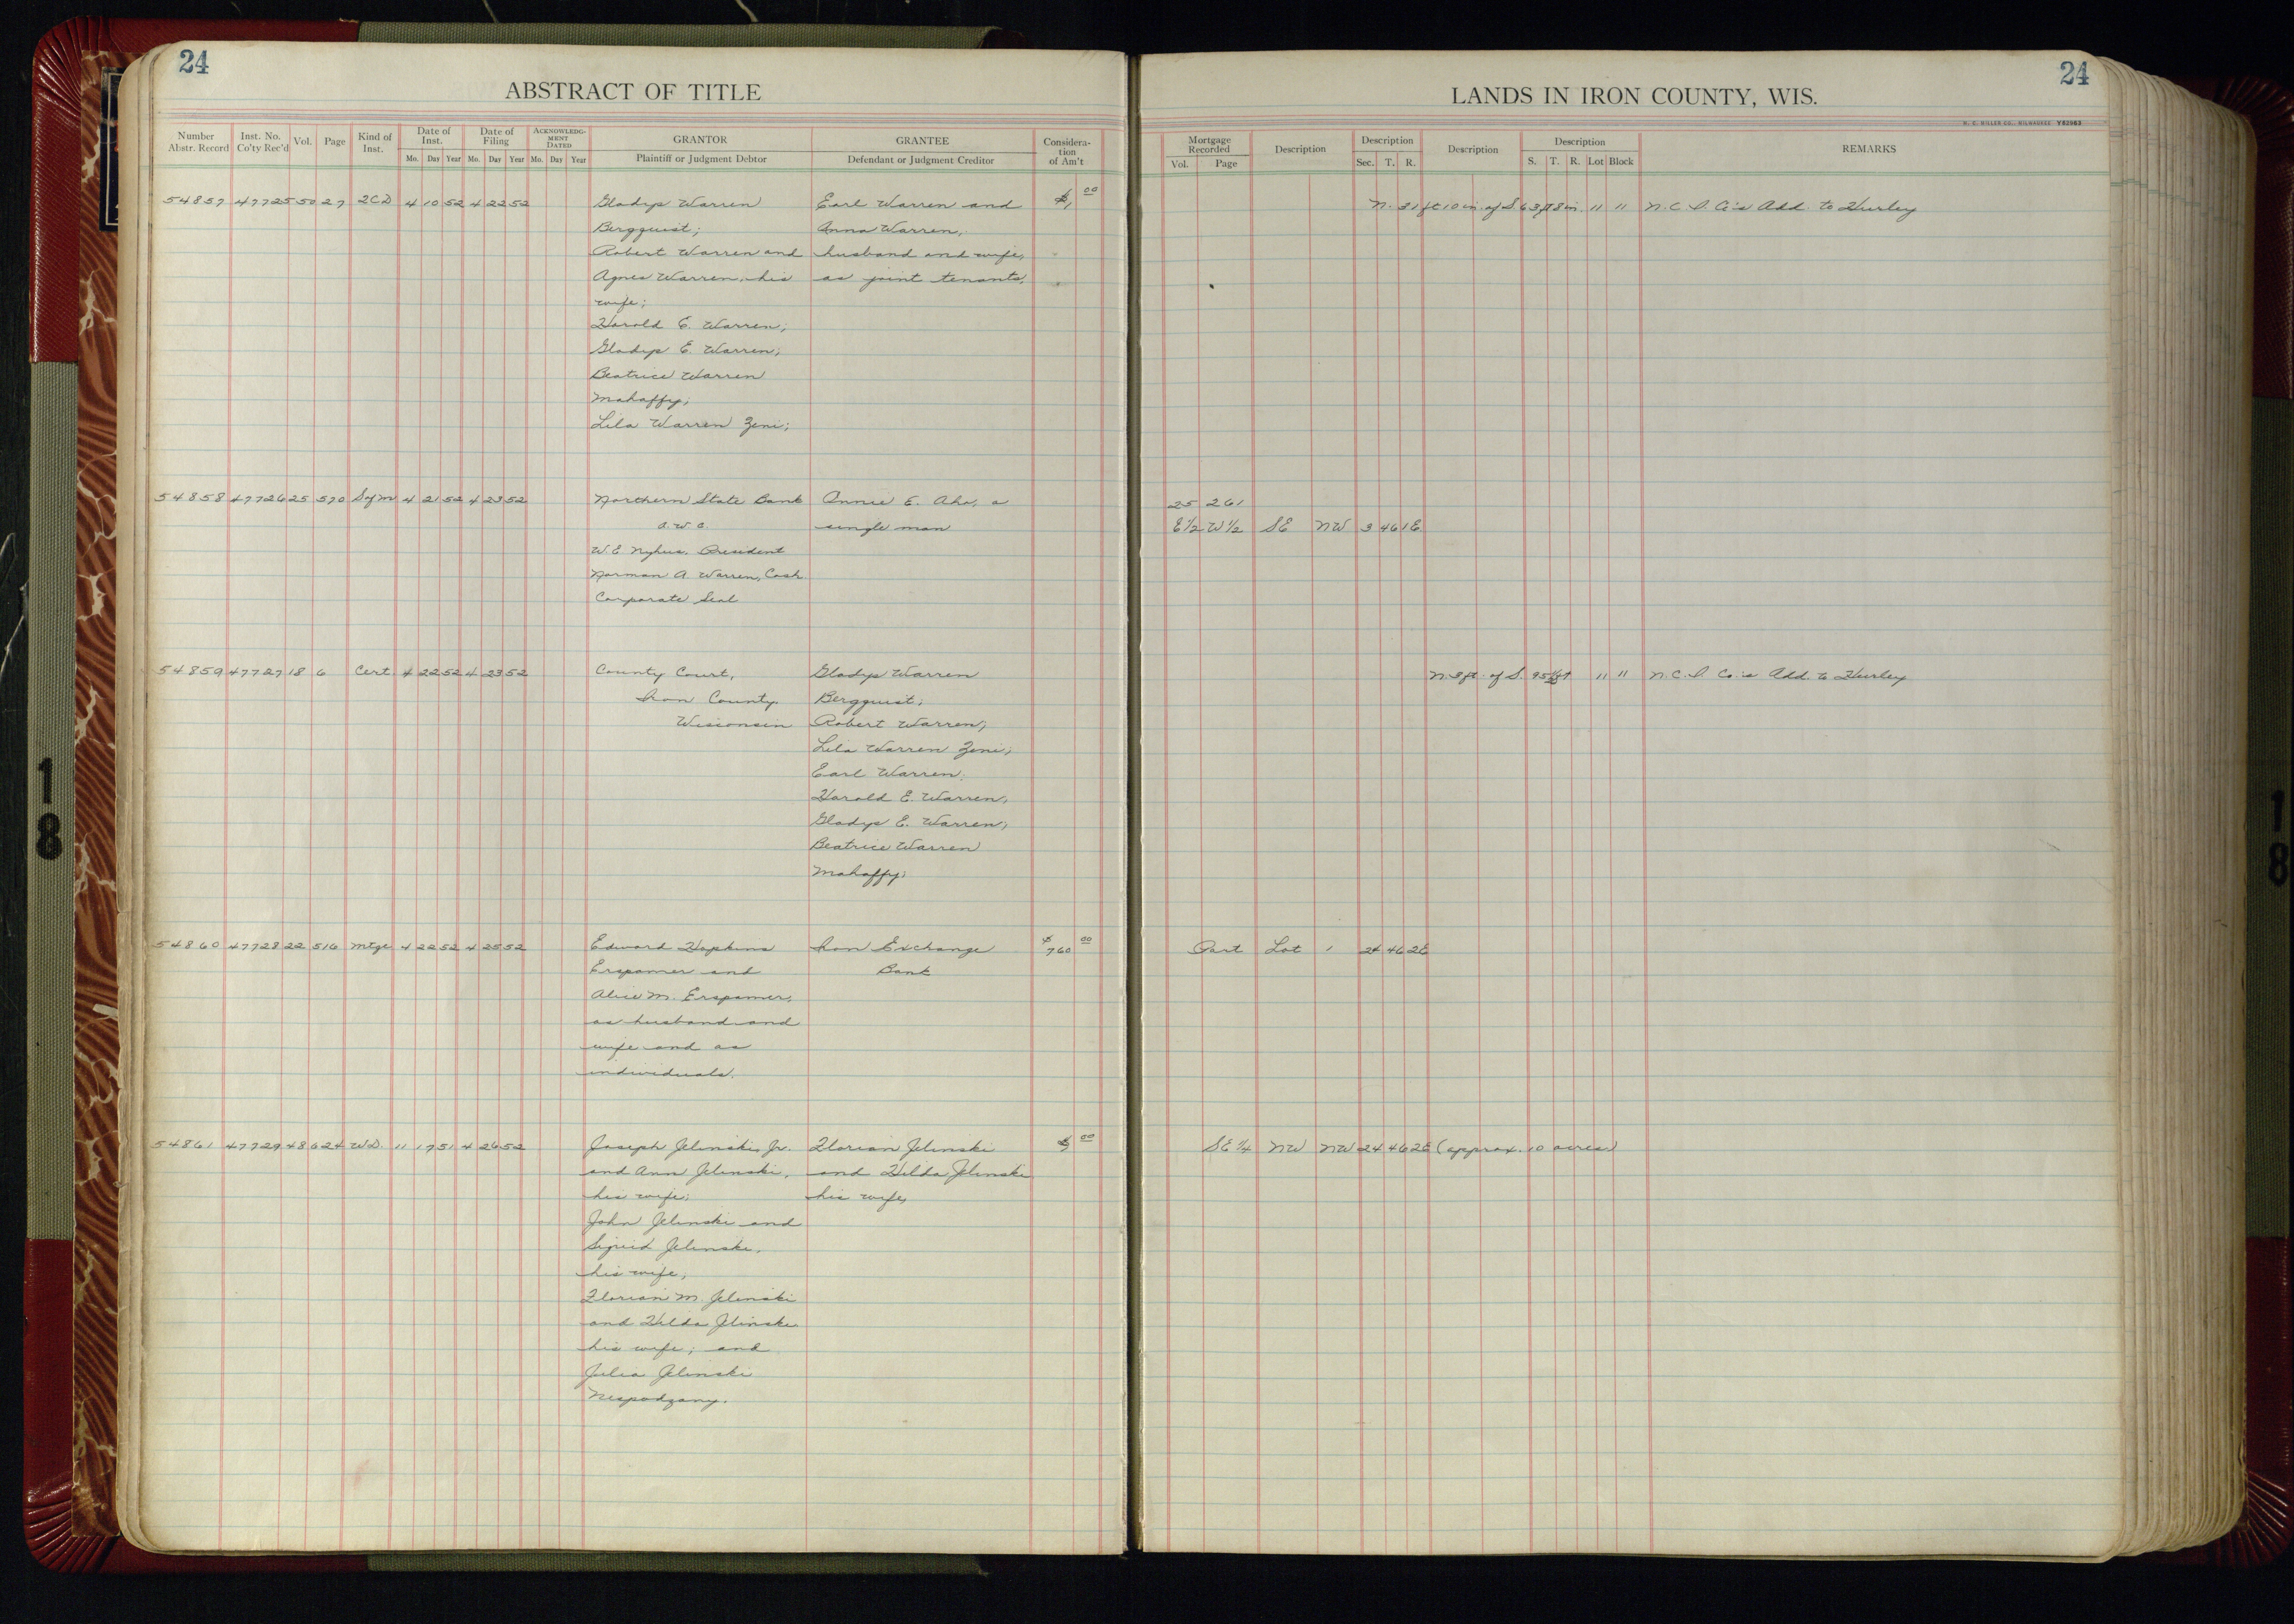 24
ABSTRACT OF TITLE
Number Abstr. Record | Inst. No. Co'ty Rec'd | Vol. | Page | Kind of Inst. | Date of Inst. Mo. Day Year | Date of Filing Mo. Day Year | ACKNOWLEDGMENT DATED Mo. Day Year | GRANTOR Plaintiff or Judgment Debtor | GRANTEE Defendant or Judgment Creditor | Consideration of Am't
54857 47725 50 27 2CD 4 10 52 4 22 52 Gladys Warren Earl Warren and $1, 00
Bergquist; Anna Warren,
Robert Warren and husband and wife,
Agnes Warren, his as joint tenants,
wife;
Harold E. Warren;
Gladys E. Warren;
Beatrice Warren
Mahaffy;
Lila Warren Zeni;
54858 47726 25 570 Sofm 4 21 52 4 23 52 Northern State Bank Annie E. Aho, a
a.w.c. single man
W.E. Nyhus, President
Norman A. Warren, Cash
Corporate Seal
54859 47727 18 6 Cert 4 22 52 4 23 52 County Court, Gladys Warren
Iron County Bergquist;
Wisconsin Robert Warren;
Lila Warren Zeni;
Earl Warren;
Harold E. Warren,
Gladys E. Warren;
Beatrice Warren
Mahaffy;
54860 47728 22 516 Mtge 4 22 52 4 25 52 Edward Hopkins Iron Exchange $760 00
Erspamer and Bank
Alice M. Erspamer,
as husband and
wife and as
individuals.
54861 47729 48 624 W.D. 11 17 51 4 26 52 Joseph Jelinski, Jr. Florian Jelinski $ 00
and Ann Jelinski, and Hilda Jelinski
his wife; his wife,
John Jelinski and
Sigrid Jelinski,
his wife,
Florian M. Jelinski
and Hilda Jlinski
his wife; and
Julia Jelinski
Niespodzany.
24
LANDS IN IRON COUNTY, WIS.
H. C. MILLER CO., MILWAUKEE Y62963
Mortgage Recorded Vol. Page | Description | Description Sec. T. R. | Description | Description S. T. R. Lot Block | REMARKS
N. 31 ft 10 in. of S. 63 ft 8 in. 11 11 N.C.I. Co's Add. to Hurley
25 261
E½ W½ SE NW 3 46 1E
N. 3 ft. of S. 11 11 N.C.I. Co's Add. to Hurley
Part Lot 1 24 46 2E
SE ¼ NW NW 24 46 2E (approx. 10 acres)
18
18